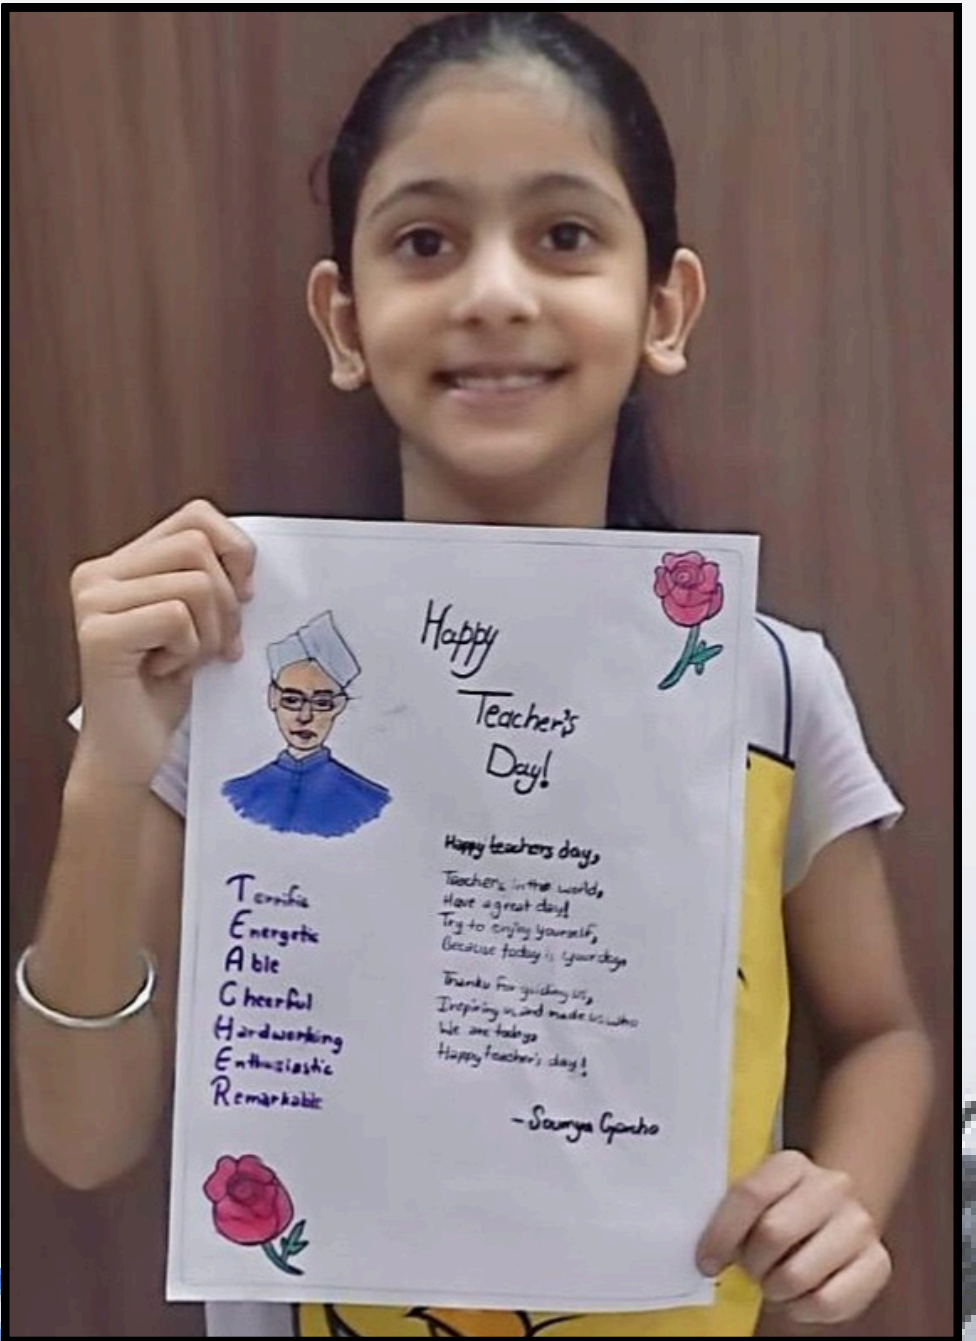 Happy
Teacher's
Day!
Terrific
Energetic
Able
Cheerful
Hardworking
Enthusiastic
Remarkable
Happy teachers day,
Teachers in the world,
Have a great day!
Try to enjoy yourself,
Because today is your day.
Thanks for guiding us,
Inspiring us and made us who
We are today,
Happy teacher's day!
- Soumya